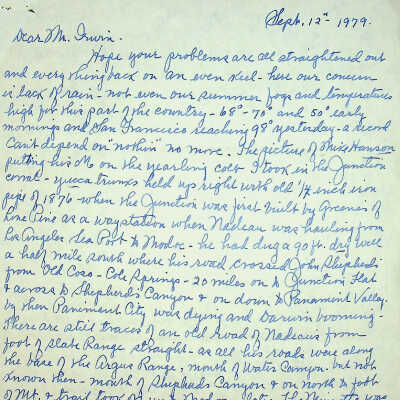 Sept. 12th 1979.
Dear Mr. Irwin.
Hope your problems are all straightened out
and everything back on an even keel - here our concern
is lack of rain - not even our summer fogs and temperatures
high for this part of the country - 68° - 70° and 50° early
mornings and San Francisco reaching 98° yesterday - a record
Can't depend on "nothin" no more. The picture of Miss Hanson
putting his M on the yearling colt I took in the Junction
corral - yucca trunks held up right with old 1/4 inch iron
pipe of 1876 when the Junction was first built by Greenes of
Lone Pine as a waystation when Nadeau was hauling from
Los Angeles Sea Port to Modoc - he had dug a 90 ft. dry well
a half mile south where his road crossed John Shepherd's
from Old Coso - Cole Springs - 20 miles on to Junction Flat
& across to Shepherd's Canyon & on down to Panamint Valley.
by then Panamint City was dying and Darwin booming -
There are still traces of an old road of Nadeau's from
foot of Slate Range straight - as all his roads were along
the base of the Argus Range, mouth of Water Canyon - but not
known then - mouth of Shepherds Canyon & on north to foot
of Mt. & trail took on